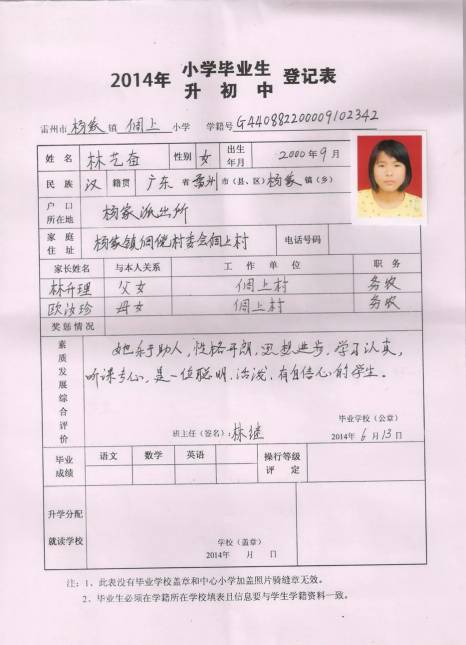 2014年 小学毕业生升初中 登记表
雷州市 杨家 镇 侗上 小学 学籍号 G440882200009102342
姓名 林艺奋 性别 女 出生年月 2000年9月
民族 汉 籍贯 广东 省 雷州 市(县、区) 杨家 镇(乡)
户口所在地 杨家派出所
家庭住址 杨家镇侗侥村委会侗上村 电话号码
家长姓名 与本人关系 工作单位 职务
林升理 父女 侗上村 务农
欧汝珍 母女 侗上村 务农
奖惩情况
素质发展综合评价
她乐于助人,性格开朗,思想进步,学习认真,
听课专心,是一位聪明,活泼,有自信心的学生。
毕业学校(公章)
班主任(签名):林继 2014年 6月13日
毕业成绩 语文 数学 英语 操行等级评定
升学分配就读学校
学校(盖章)
2014年 月 日
注:1、此表没有毕业学校盖章和中心小学加盖照片骑缝章无效。
2、毕业生必须在学籍所在学校填表且信息要与学生学籍资料一致。